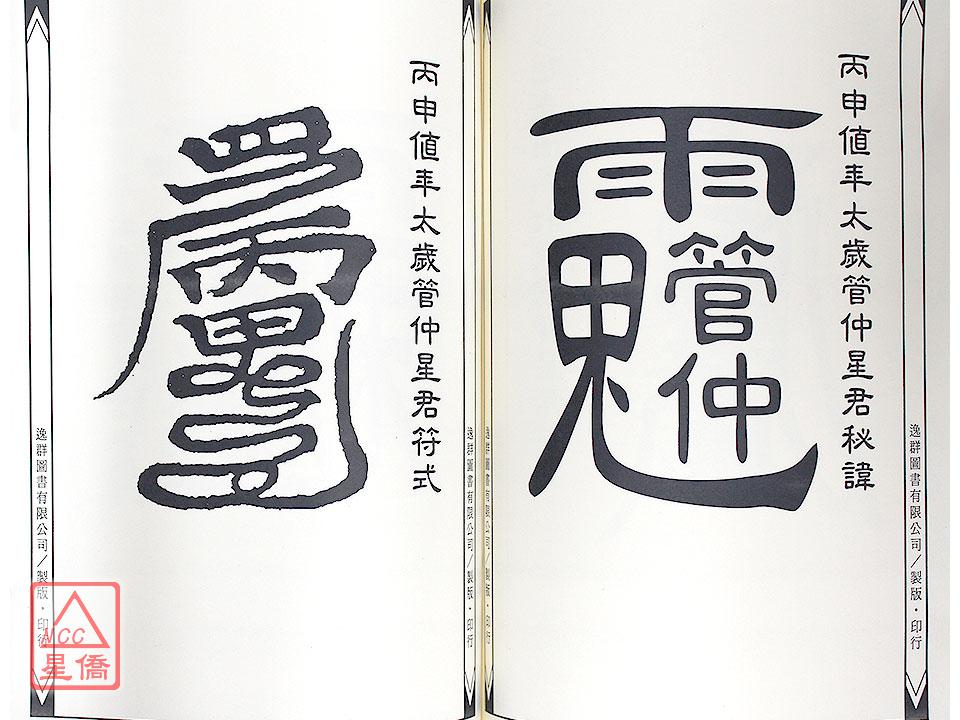 丙申値年太歲管仲星君秘諱
管仲
逸群圖書有限公司／製版・印行
丙申値年太歲管仲星君符式
逸群圖書有限公司／製版・印行
逸群圖書有限公司／製版・印行
逸群圖書有限公司／製版・印行
MCC
星僑